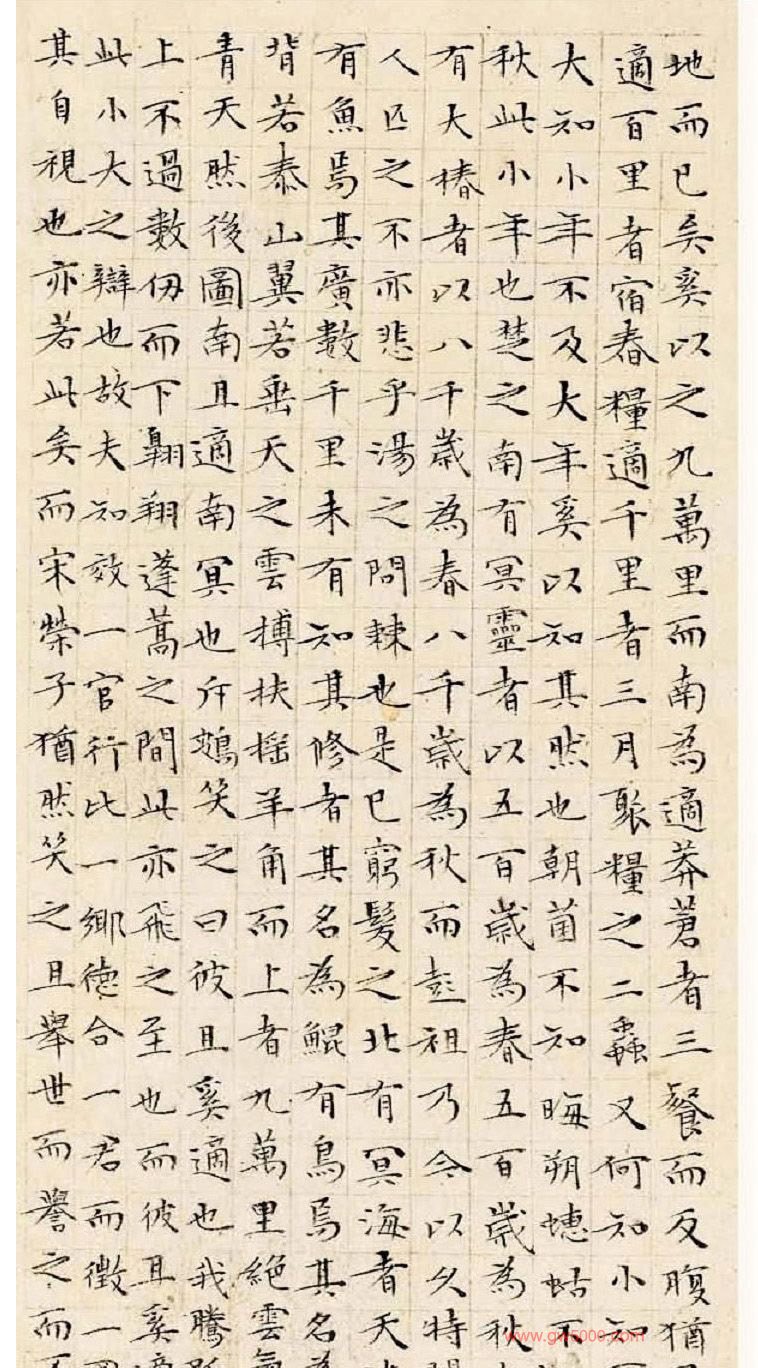 地而已矣奚以之九萬里而南為適莽蒼者三飡而反腹猶
適百里者宿舂糧適千里者三月聚糧之二蟲又何知小知
大知小年不及大年奚以知其然也朝菌不知晦朔蟪蛄不
秋此小年也楚之南有冥靈者以五百歲為春五百歲為秋
有大椿者以八千歲為春八千歲為秋而彭祖乃今以久特
人匹之不亦悲乎湯之問棘也是已窮髮之北有冥海者天
有魚焉其廣數千里未有知其修者其名為鯤有鳥焉其名
背若泰山翼若垂天之雲搏扶搖羊角而上者九萬里絕雲
青天然後圖南且適南冥也斥鴳笑之曰彼且奚適也我騰
上不過數仞而下翱翔蓬蒿之間此亦飛之至也而彼且奚
此小大之辯也故夫知效一官行比一鄉德合一君而徵一
其自視也亦若此矣而宋榮子猶然笑之且舉世而譽之而
www.gw5000.com